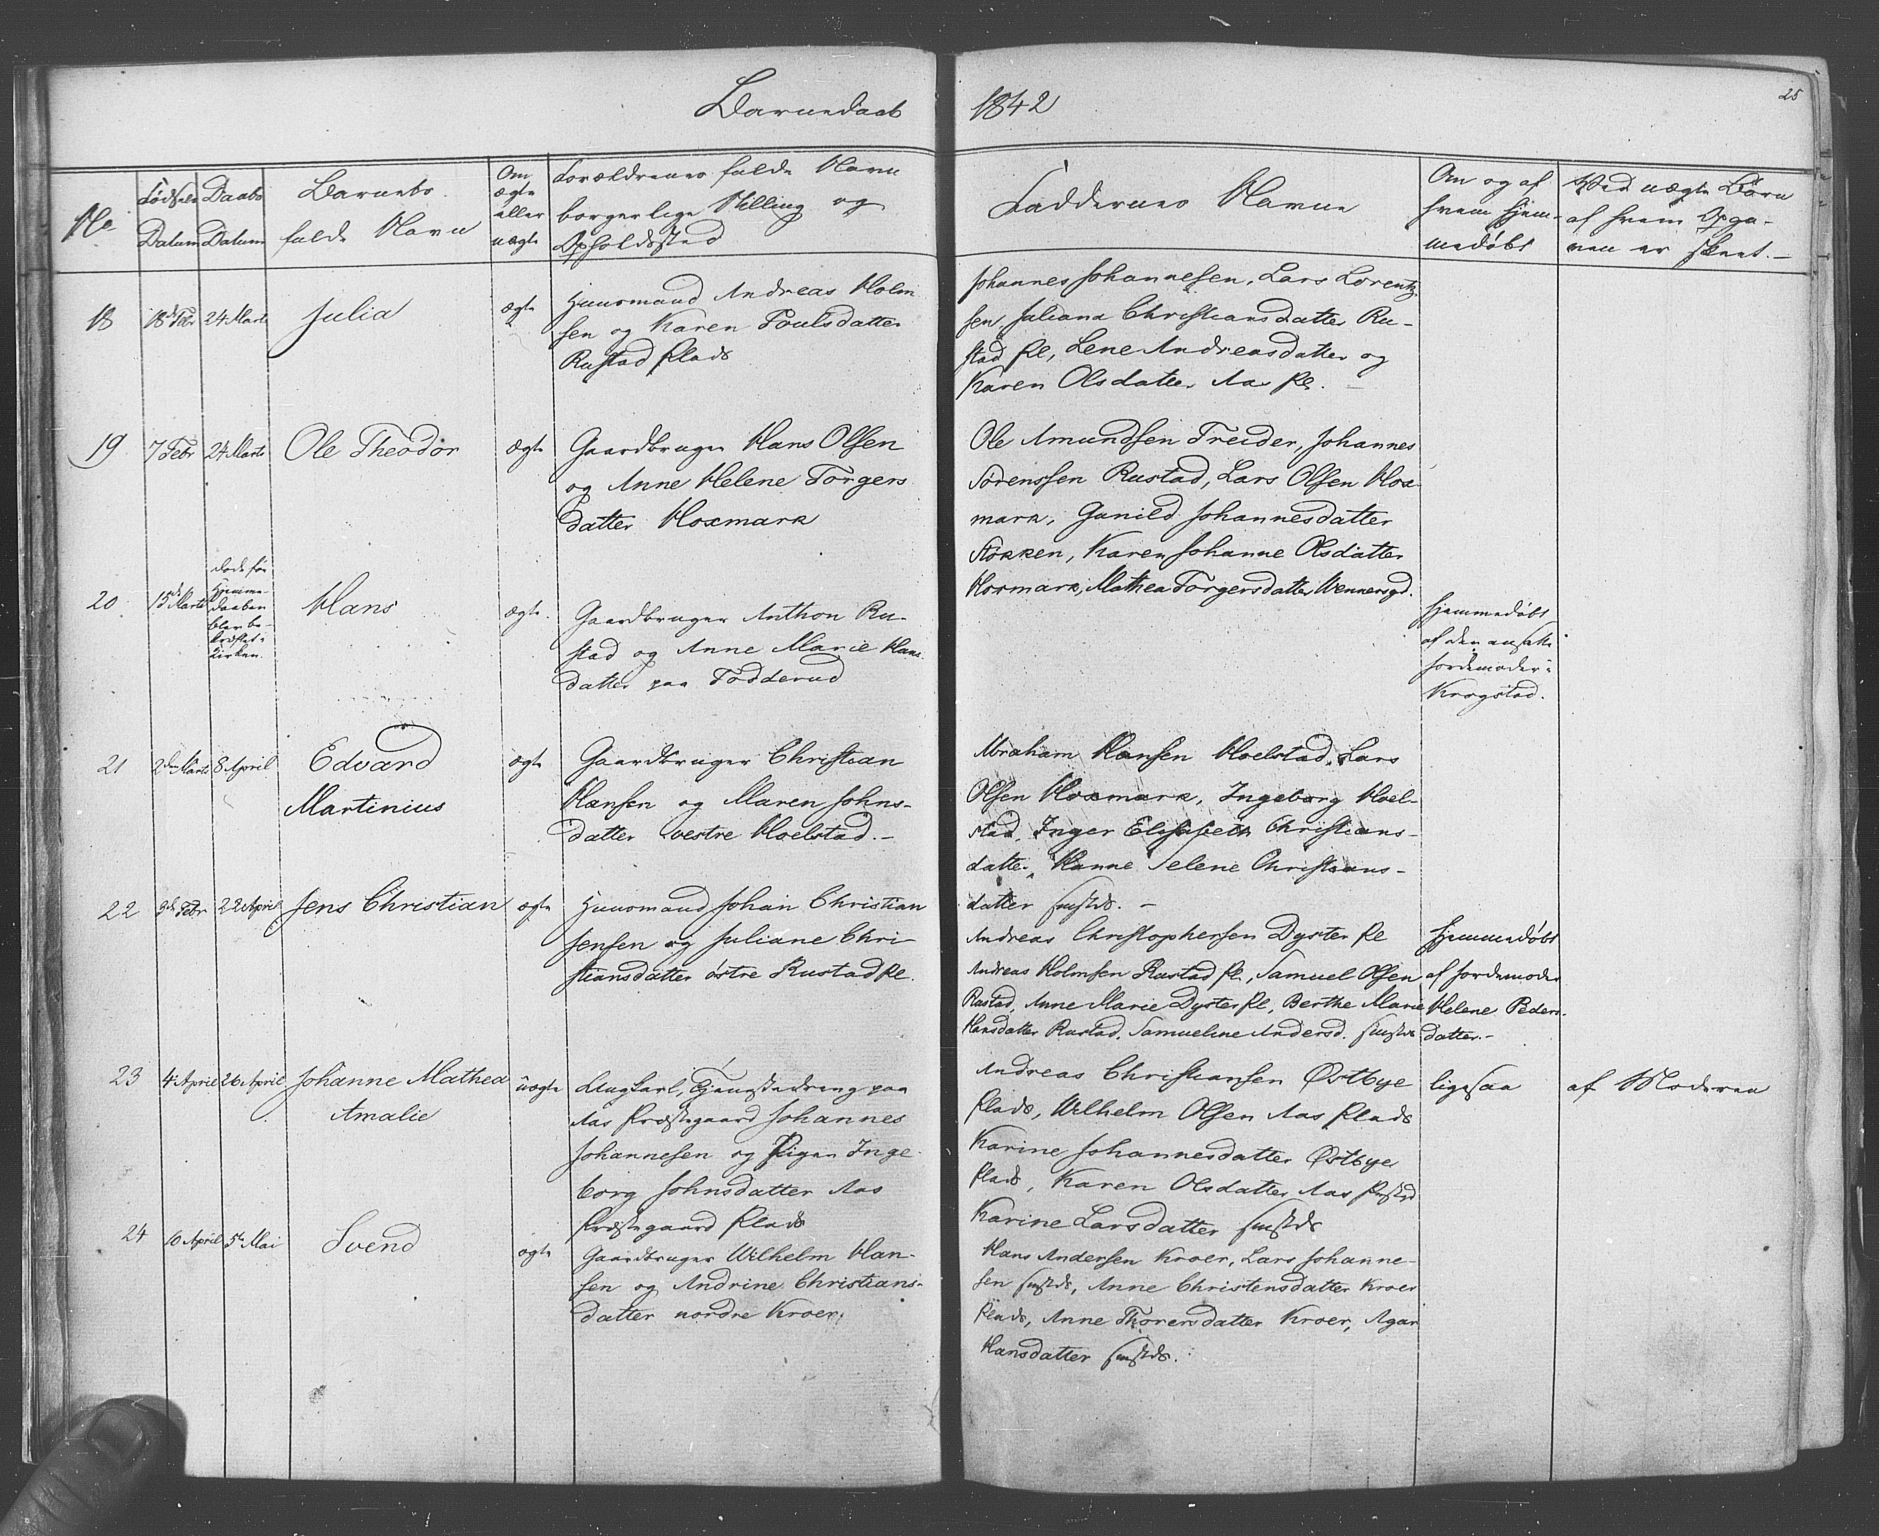 Barnedaab 1842
25
No
Fødsels Datum
Daabs Datum
Barnets fulde Navn
Om ægte eller uægte
Forældrenes fulde Navn borgerlige Stilling og Opholdssted
Faddernes Navne
Om og af hvem hjemmedøbt
Ved uægte Børn af hvem Opgaven er skeet.
18
18de Febr
24 Marts
Julia
ægte
Huusmand Andreas Holm
sen og Karen Poulsdatter
Rustad Plads
Johannes Johannesen, Lars Lorentz
sen, Juliana Christiansdatter Ru-
stad Pl, Lene Andreasdatter og
Karen Olsdatter Aas Pl.
19
7 Febr
24 Marts
Ole Theodor
ægte
Gaardbruger Hans Olsen
og Anne Helene Torgers
datter Hoxmark
Ole Amundsen Treider, Johannes
Sørenssen Rustad, Lars Olsen Hox
mark, Gunild Johannesdatter
Stokken, Karen Johanne Olsdatter
Hoxmark, Mathea Torgersdatter Wennersgd.
20
15de Marts
døde før
Hjemme-
daaben
blev be-
kræftet i
Kirken.
Hans
ægte.
Gaardbruger Anthon Ru-
stad og Anne Marie Hans
datter paa Fodderud
Hjemmedøbt
af den ansatte
Jordemoder i
Krogstad.
21
2den Marts
8 April
Edvard
Martinius
ægte
Gaardbruger Christian
Hansen og Maren Johns-
datter vestre Hoelstad.-
Abraham Hansen Hoelstad, Lars
Olsen Hoxmark, Ingeborg Hoel-
stad, Inger Elisabeth Christians-
datter, Hanne Selene Christians-
datter smstds. -
22
9de Febr
22 April
Jens Christian
ægte
Huusmand Johan Christian
Jensen og Juliane Chri-
stiansdatter østre Rustad Pl.
Andreas Christophersen Dyster Pl
Andreas Holmsen Rustad Pl., Samuel Olsen
Rustad, Anne Marie Dyster Pl, Berthe Marie
Hansdatter Rustad, Samueline Andersd. smstds
Hjemmedøbt
af Jordemoder
Helene Peders-
datter.-
23
4 April
26 April
Johanne Mathea
Amalie
uægte
Ungkarl, Tjenestedreng paa
Aas Præstegaard Johannes
Johannesen og Pigen Inge
borg Johnsdatter Aas
Præstegaard Plads
Andreas Christiansen Østbye
Plads, Wilhelm Olsen Aas Plads
Karine Johannesdatter Østbye
Plads, Karen Olsdatter Aas Præstgd
Karine Larsdatter smstds
ligesaa
af Moderen
24
10 April
5te Mai
Svend
ægte
Gaardbruger Wilhelm Han-
sen og Andrine Christians-
datter nordre Kroer.
Hans Andersen Kroer, Lars Johanne-
sen smstds, Anne Christensdatter Kroer
Plads, Anne Thorersdatter Kroer, Agar
Hansdatter smstds.